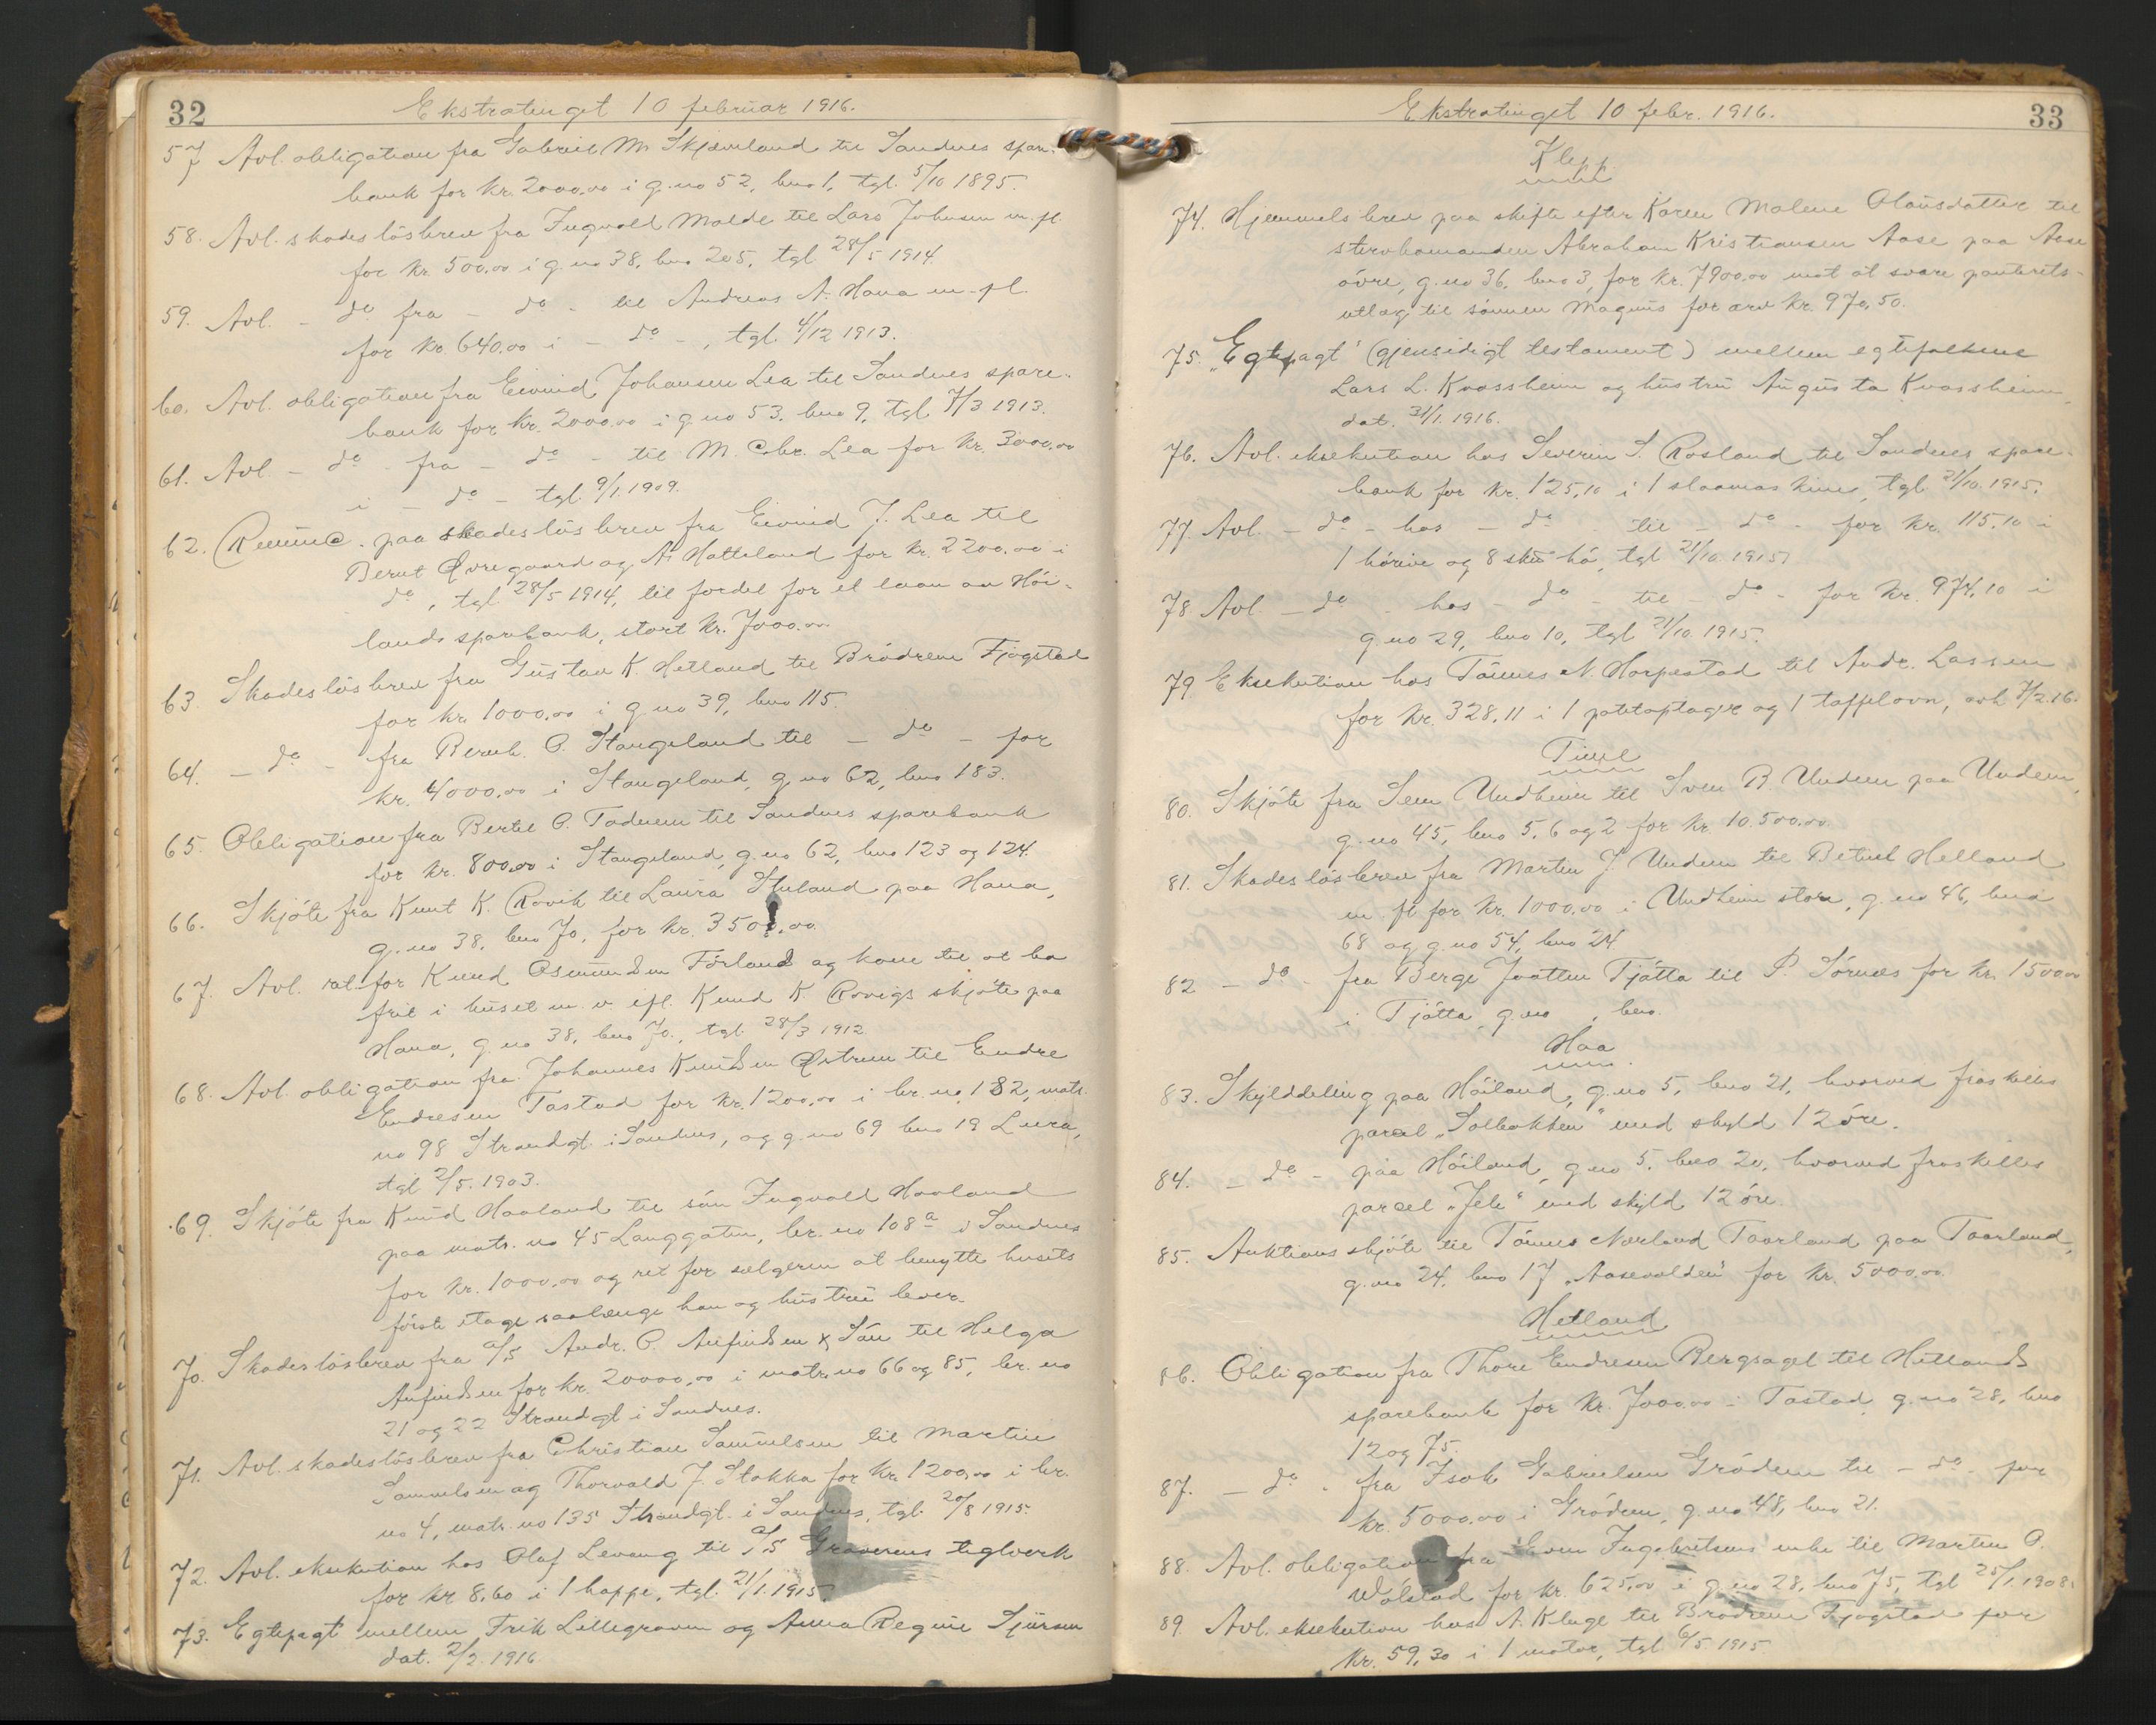 32 Ekstratinget 10 februar 1916.
57 Avl. obligation fra Gabriel M. Skjæveland til Sandnes spare-
bank for kr. 2000,00 i g.no 52, bno 1, tgl. 5/10 1895.
58. Avl. skadesløsbrev fra Ingvald Molde til Lars Johnsen m. fl.
for kr. 500,00 i g.no 38, bno 205, tgl 28/5 1914.
59. Avl. - do fra - do - til Andreas A. Hana m. fl.
for kr. 640,00 i - do -, tgl. 4/12 1913.
60. Avl. obligation fra Eivind Johansen Lea til Sandnes spare-
bank for kr. 2000,00 i g.no 53, bno 9, tgl 7/3 1913.
61. Avl - do - fra - do - til M. Chr. Lea for kr. 3000,00
i - do - tgl. 9/1 1909.
62. Renunc. paa skadesløsbrev fra Eivind J. Lea til
Bernt Øvregaard og A. Hatteland for kr. 2200,00 i
do, tgl 28/5 1914, til fordel for et laan av Høi-
lands sparebank, stort kr. 7000,00
63. Skadesløsbrev fra Gustav K. Hetland til Brødrene Fjogstad
for kr. 1000,00 i g.no 39, bno 115.
64. - do - fra Bernh. O. Stangeland til - do - for
kr. 4000,00 i Stangeland, g.no 62, bno 183.
65. Obligation fra Bertel O. Tadnem til Sandnes sparebank
for kr. 800,00 i Stangeland, g.no 62, bno 123 og 124.
66. Skjøte fra Knut K. Rovik til Laura Stuland paa Hana,
g.no 38, bno 70, for kr. 3500,00.
67. Avl. ret for Knud Osmundsen Førland og kone til at bo
frit i huset m. v. ifl. Knud K. Rovigs skjøte paa
Hana, g.no 38, bno 70, tgl. 28/3 1912.
68. Avl. obligation fra Johannes Knudsen Østrem til Endre
Endresen Tastad for kr. 1200,00 i br. no 182, matr.
no 98 Strandgt. i Sandnes, og g.no 69 bno 19 Lura,
tgl 2/5. 1903.
69. Skjøte fra Knud Haaland til søn Ingvald Haaland
paa matr. no 45 Langgaten, br. no 108a i Sandnes
for kr. 1000,00 og ret for sælgeren at benytte husets
første etage saalænge han og hustru lever.
70. Skadesløsbrev fra A/S Andr. O. Aufindsen & Søn til Helga
Aufindsen for kr. 20000,00 i matr. no 66 og 85, br. no
21 og 22 Strandgt i Sandnes.
71. Avl. skadesløsbrev fra Christian Samuelsen til Martin
Samuelsen og Thorvald J. Stokka for kr. 1200,00 i br.
no 4, matr. no 135 Strandgt. i Sandnes, tgl. 20/8 1915.
72. Avl. eksekution hos Olaf Levang til A/S Graverens teglverk
for kr 8,60 i 1 hoppe, tgl. 21/1. 1915.
73. Egtepagt mellem Frik Lillegraven og Anna Regine Sjursen
dat. 2/2. 1916
Ekstratinget 10 febr. 1916. 33
Klepp
74. Hjemmelsbrev paa skifte efter Karen Malene Olausdatter til
stervbomanden Abraham Kristiansen Aase paa Aase
øvre, g.no 36, bno 3, for kr. 7900,00 mot at svare panterets-
utlæg til sønnen Magnus for arv kr. 970,50.
75. "Egtepagt" (gjensidigt testament) mellem egtefolkene
Lars L. Kvassheim og hustru Augusta Kvassheim,
dat. 31/1. 1916.
76. Avl. eksekution hos Severin S. Rosland til Sandnes spare-
bank for kr. 125,10 i 1 slaamaskine, tgl. 21/10. 1915.
77. Avl. - do - hos - do til - do - for kr. 115,10 i
1 hørive og 8 skw hø, tgl 21/10. 1915.
78. Avl. - do - hos - do - til - do - for kr. 974,10 i
g.no 29, bno 10, tgl 21/10. 1915.
79 Eksekution hos Tønnes N. Horpestad til Andr. Lassen
for kr. 328,11 i 1 potetoptager og 1 taffelovn, avh 7/2.16.
Time
80. Skjøte fra Sem Undheim til Sven B. Undem paa Undem,
g.no 45, bno 5, 6 og 2 for kr. 10.500,00.
81. Skadesløsbrev fra Martin J. Undem til Betuel Helland
m. fl for kr. 1000,00 i Undheim store, g.no 46, bno
68 og g.no 54, bno 24
82 - do - fra Berge Joatten Tjåtta til P. Sørnes for kr. 1500,00
i Tjåtta, g.no , bno.
Haa
83. Skylddeling paa Høiland, g.no 5, bno 21, hvorved fraskilles
parcel "Solbakken" med skyld 12 øre.
84. - do - paa Høiland, g.no 5, bno 20, hvorved fraskilles
parcel "Jele" med skyld 12 øre.
85. Auktionsskjøte til Tønnes Nærland Taarland paa Taarland,
g.no 24, bno 17 "Aasevolden" for kr. 5000,00.
Hetland
86. Obligation fra Thore Endresen Bergsagel til Hetlands
sparebank for kr. 7000,00 i Tastad, g.no 28, bno
12 og 75.
87. - do - fra Isak Gabrielsen Grødem til - do - for
kr. 5000,00 i Grødem, g.no 48, bno 21.
88. Avl. obligation fra Even Ingebretsens enke til Marten O.
Wolstad for kr. 625,00 i g.no 28, bno 75, tgl 25/1. 1908.
89. Avl. eksekution hos A. Kluge til Brødrene Fjogstad for
kr. 59,30 i 1 motor, tgl 6/5 1915.